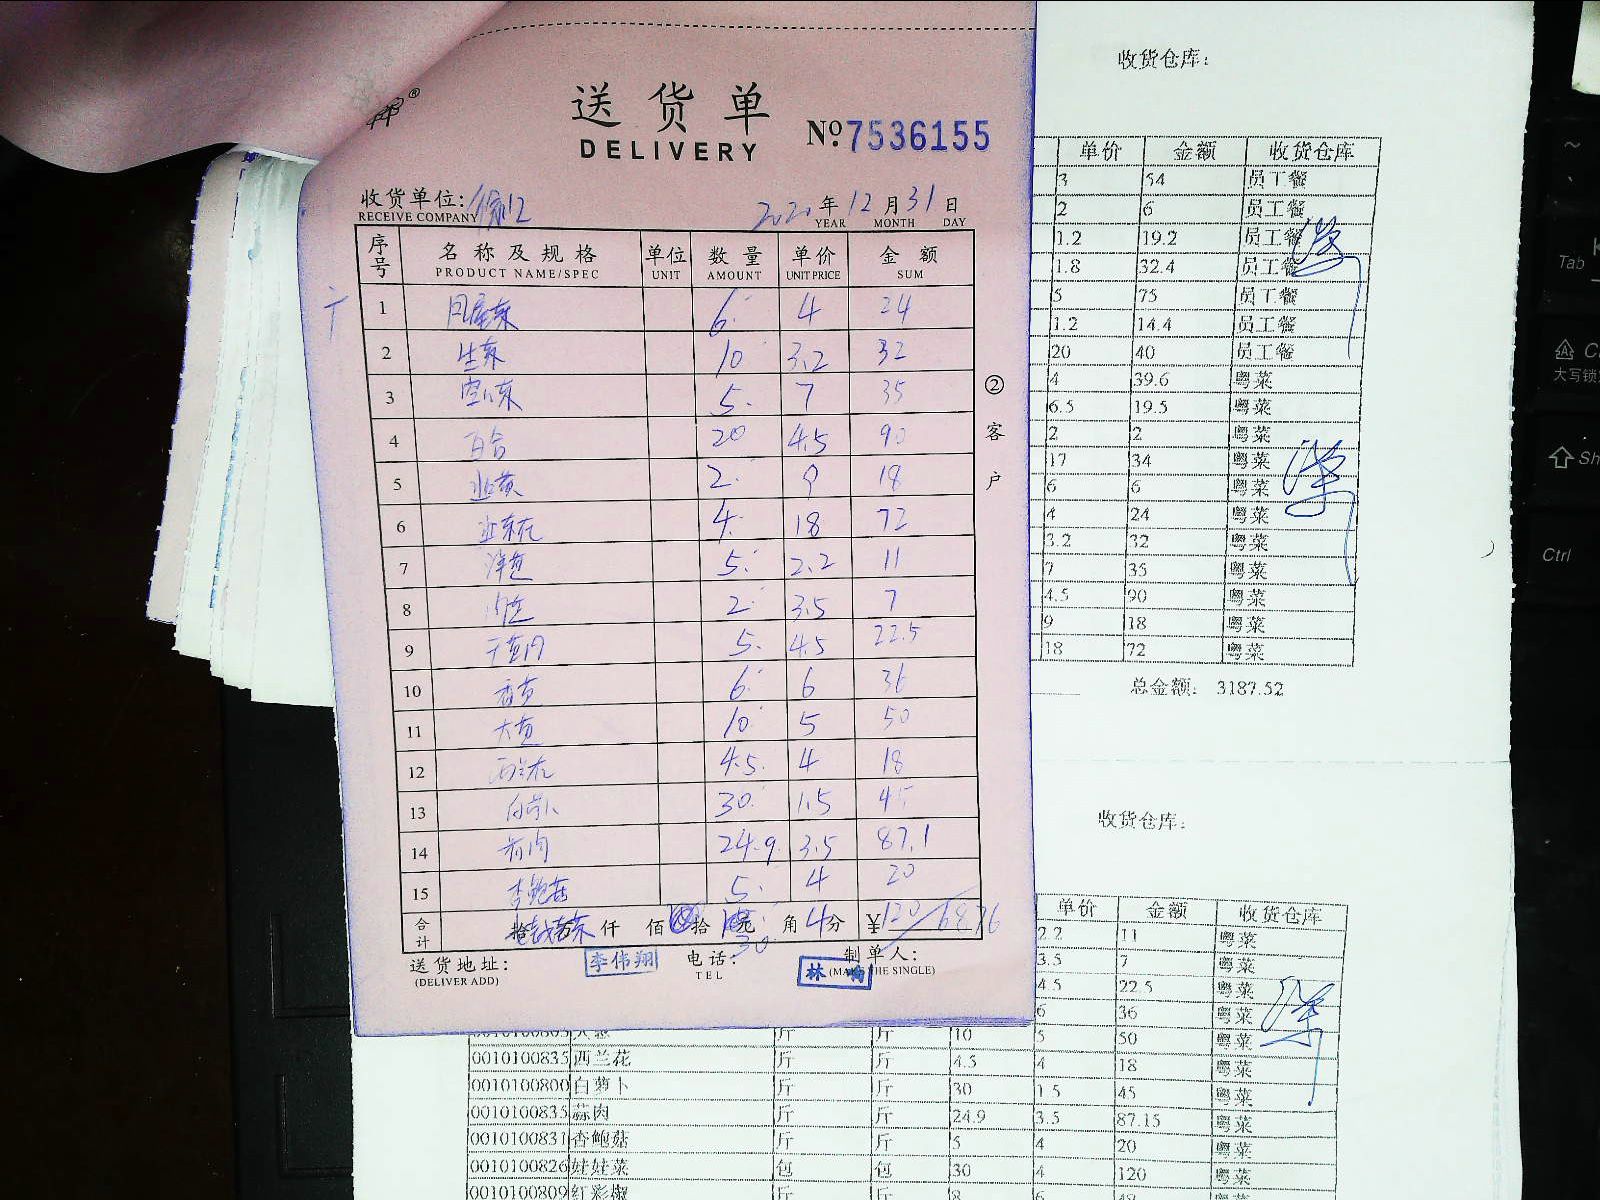 送货单
DELIVERY
No.7536155
收货单位:
RECEIVE COMPANY
2020年12月31日
YEAR MONTH DAY
序号 名称及规格 单位 数量 单价 金额
PRODUCT NAME/SPEC UNIT AMOUNT UNIT PRICE SUM
1 6 4 24
2 生菜 10 3.2 32
3 5 7 35
4 百合 20 4.5 90
5 2 9 18
6 4 18 72
7 洋葱 5 2.2 11
8 2 3.5 7
9 5 4.5 22.5
10 6 6 36
11 大葱 10 5 50
12 西兰花 4.5 4 18
13 白萝卜 30 1.5 45
14 蒜肉 24.9 3.5 87.1
15 杏鲍菇 5 4 20
合计 仟 佰 拾 元 角 4分 ¥120
30
送货地址: 李伟翔 电话: 制单人:
(DELIVER ADD) TEL 林 (MAKE THE SINGLE)
②客户
收货仓库:
单价 金额 收货仓库
3 54 员工餐
2 6 员工餐
1.2 19.2 员工餐
1.8 32.4 员工餐
5 75 员工餐
1.2 14.4 员工餐
20 40 员工餐
4 39.6 粤菜
6.5 19.5 粤菜
2 2 粤菜
17 34 粤菜
6 6 粤菜
4 24 粤菜
3.2 32 粤菜
7 35 粤菜
4.5 90 粤菜
9 18 粤菜
18 72 粤菜
总金额: 3187.52
收货仓库:
单价 金额 收货仓库
2.2 11 粤菜
3.5 7 粤菜
4.5 22.5 粤菜
6 36 粤菜
大葱 斤 斤 10 5 50 粤菜
0010100835 西兰花 斤 斤 4.5 4 18 粤菜
0010100800 白萝卜 斤 斤 30 1.5 45 粤菜
0010100835 蒜肉 斤 斤 24.9 3.5 87.15 粤菜
0010100831 杏鲍菇 斤 斤 5 4 20 粤菜
0010100826 娃娃菜 包 包 30 4 120 粤菜
0010100809 红彩椒 斤 斤 8 6 48 粤菜
Tab
大写锁
Ctrl